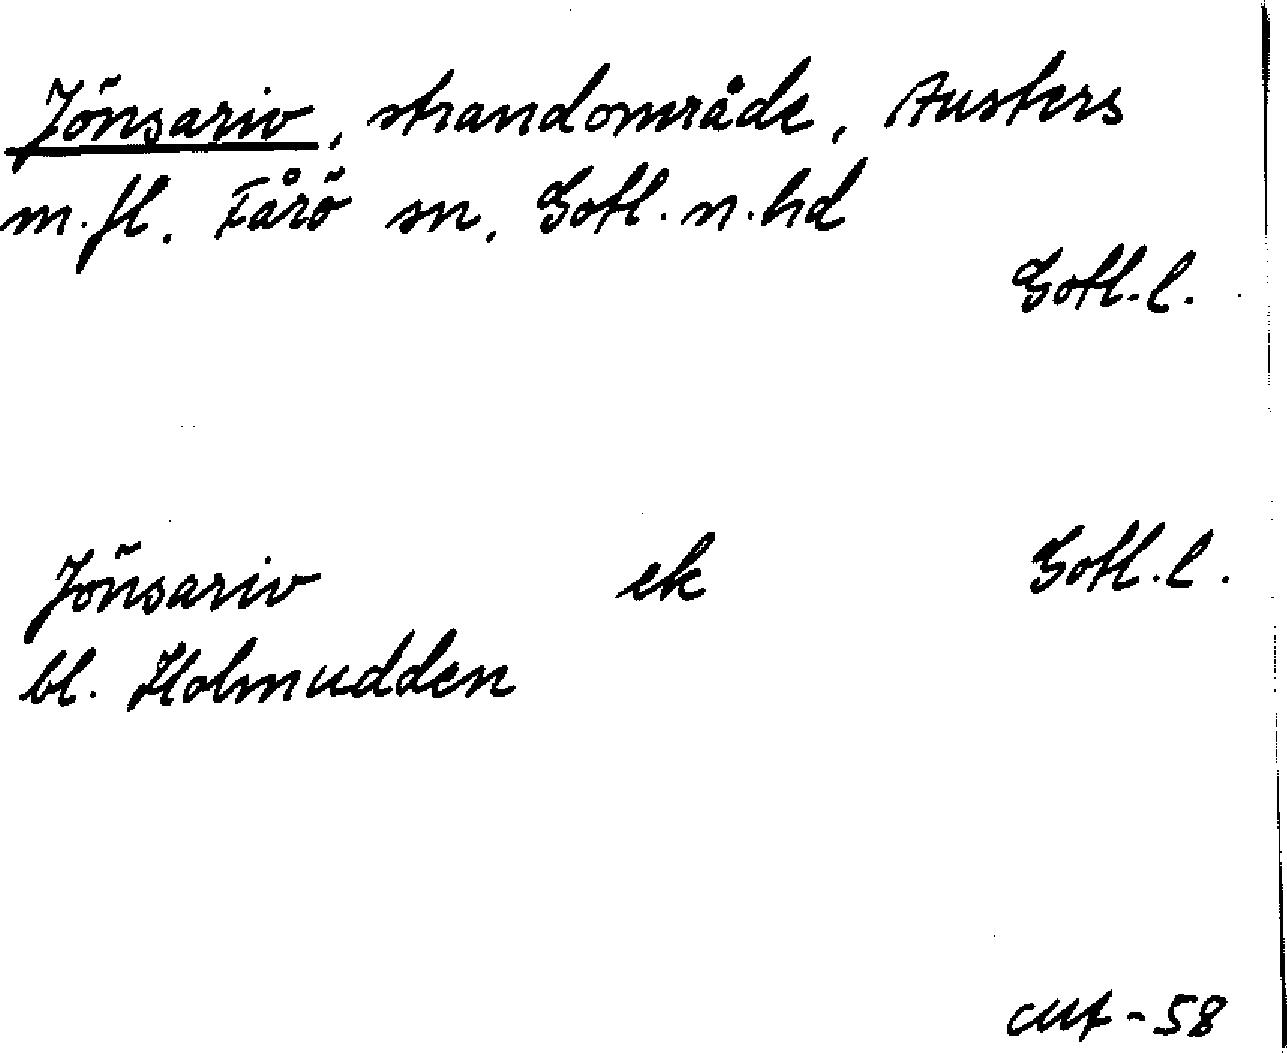 Jönsariv, strandområde, Austers
m.fl. Fårö sn, Gotl. n. hd
Gotl. l.
Jönsariv ek Gotl. l.
bl. Holmudden
-58